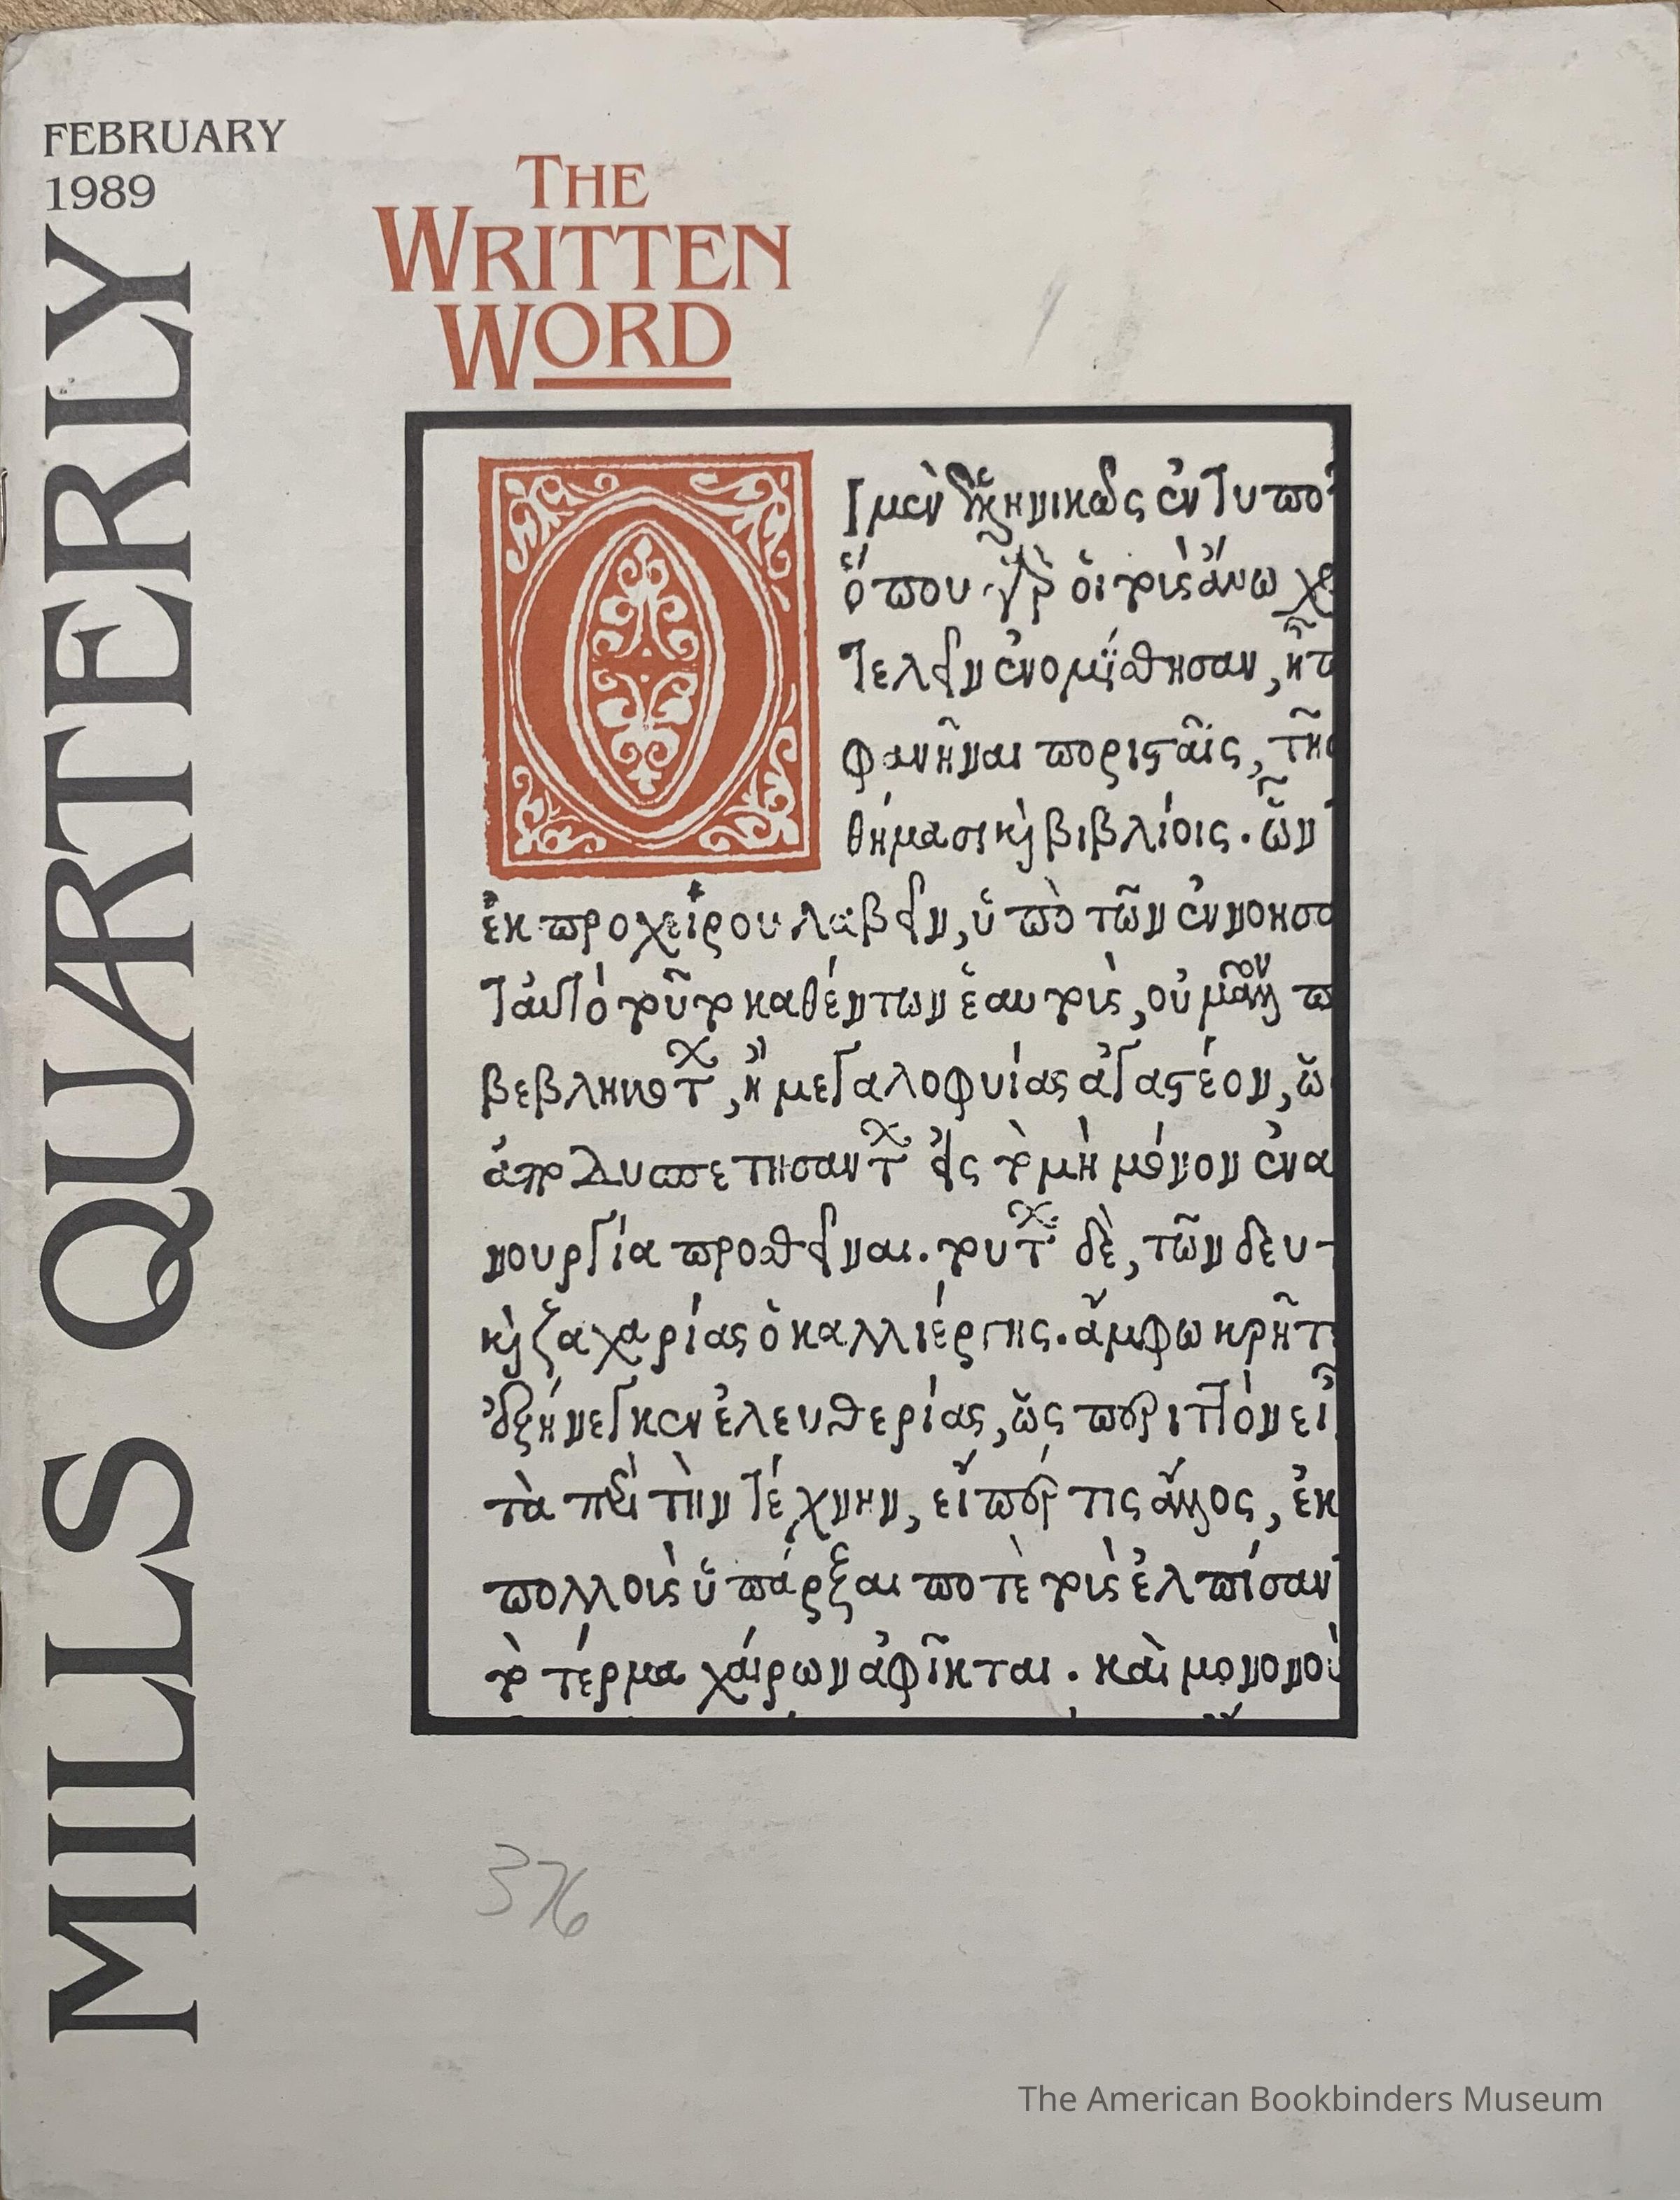 FEBRUARY
1989
MILLS QUARTERLY
THE
WRITTEN
WORD
Ο
Ι μὲν ἐν τυπο
ὅπου γὰρ οἱ τοῖς ἄνω
τελεῖν ἐνομίσθησαν, ἢ
φανῆναι πορισταῖς, τῆς
θήμασι καὶ βιβλίοις. ὧν
ἐκ προχείρου λαβεῖν, ὑπὸ τῶν ἐννοησα
ταὐτὸ τοῦτο καθέντων ἑαυτοὺς, οὐ μᾶλλον
βεβληκότας, ἢ μεγαλοφυίας ἀγαστέον,
εἰς τὸ μὴ μόνον ἐνα
νουργία προσθεῖναι. τούτους δὲ, τῶν δευτ
καὶ ζαχαρίας ὁ καλλιέργης. ἄμφω κρῆτ
ἐξήνεγκεν ἐλευθερίας, ὡς περιττὸν εἶ
τὰ περὶ τὴν τέχνην, εἴπερ τις ἄλλος, ἐκ
πολλοῖς ὑπάρξαι ποτὲ τοῖς ἐλπίσαν
τὸ τέρμα χαίρων ἀφῖκται. καὶ μονονοὺ
376
The American Bookbinders Museum